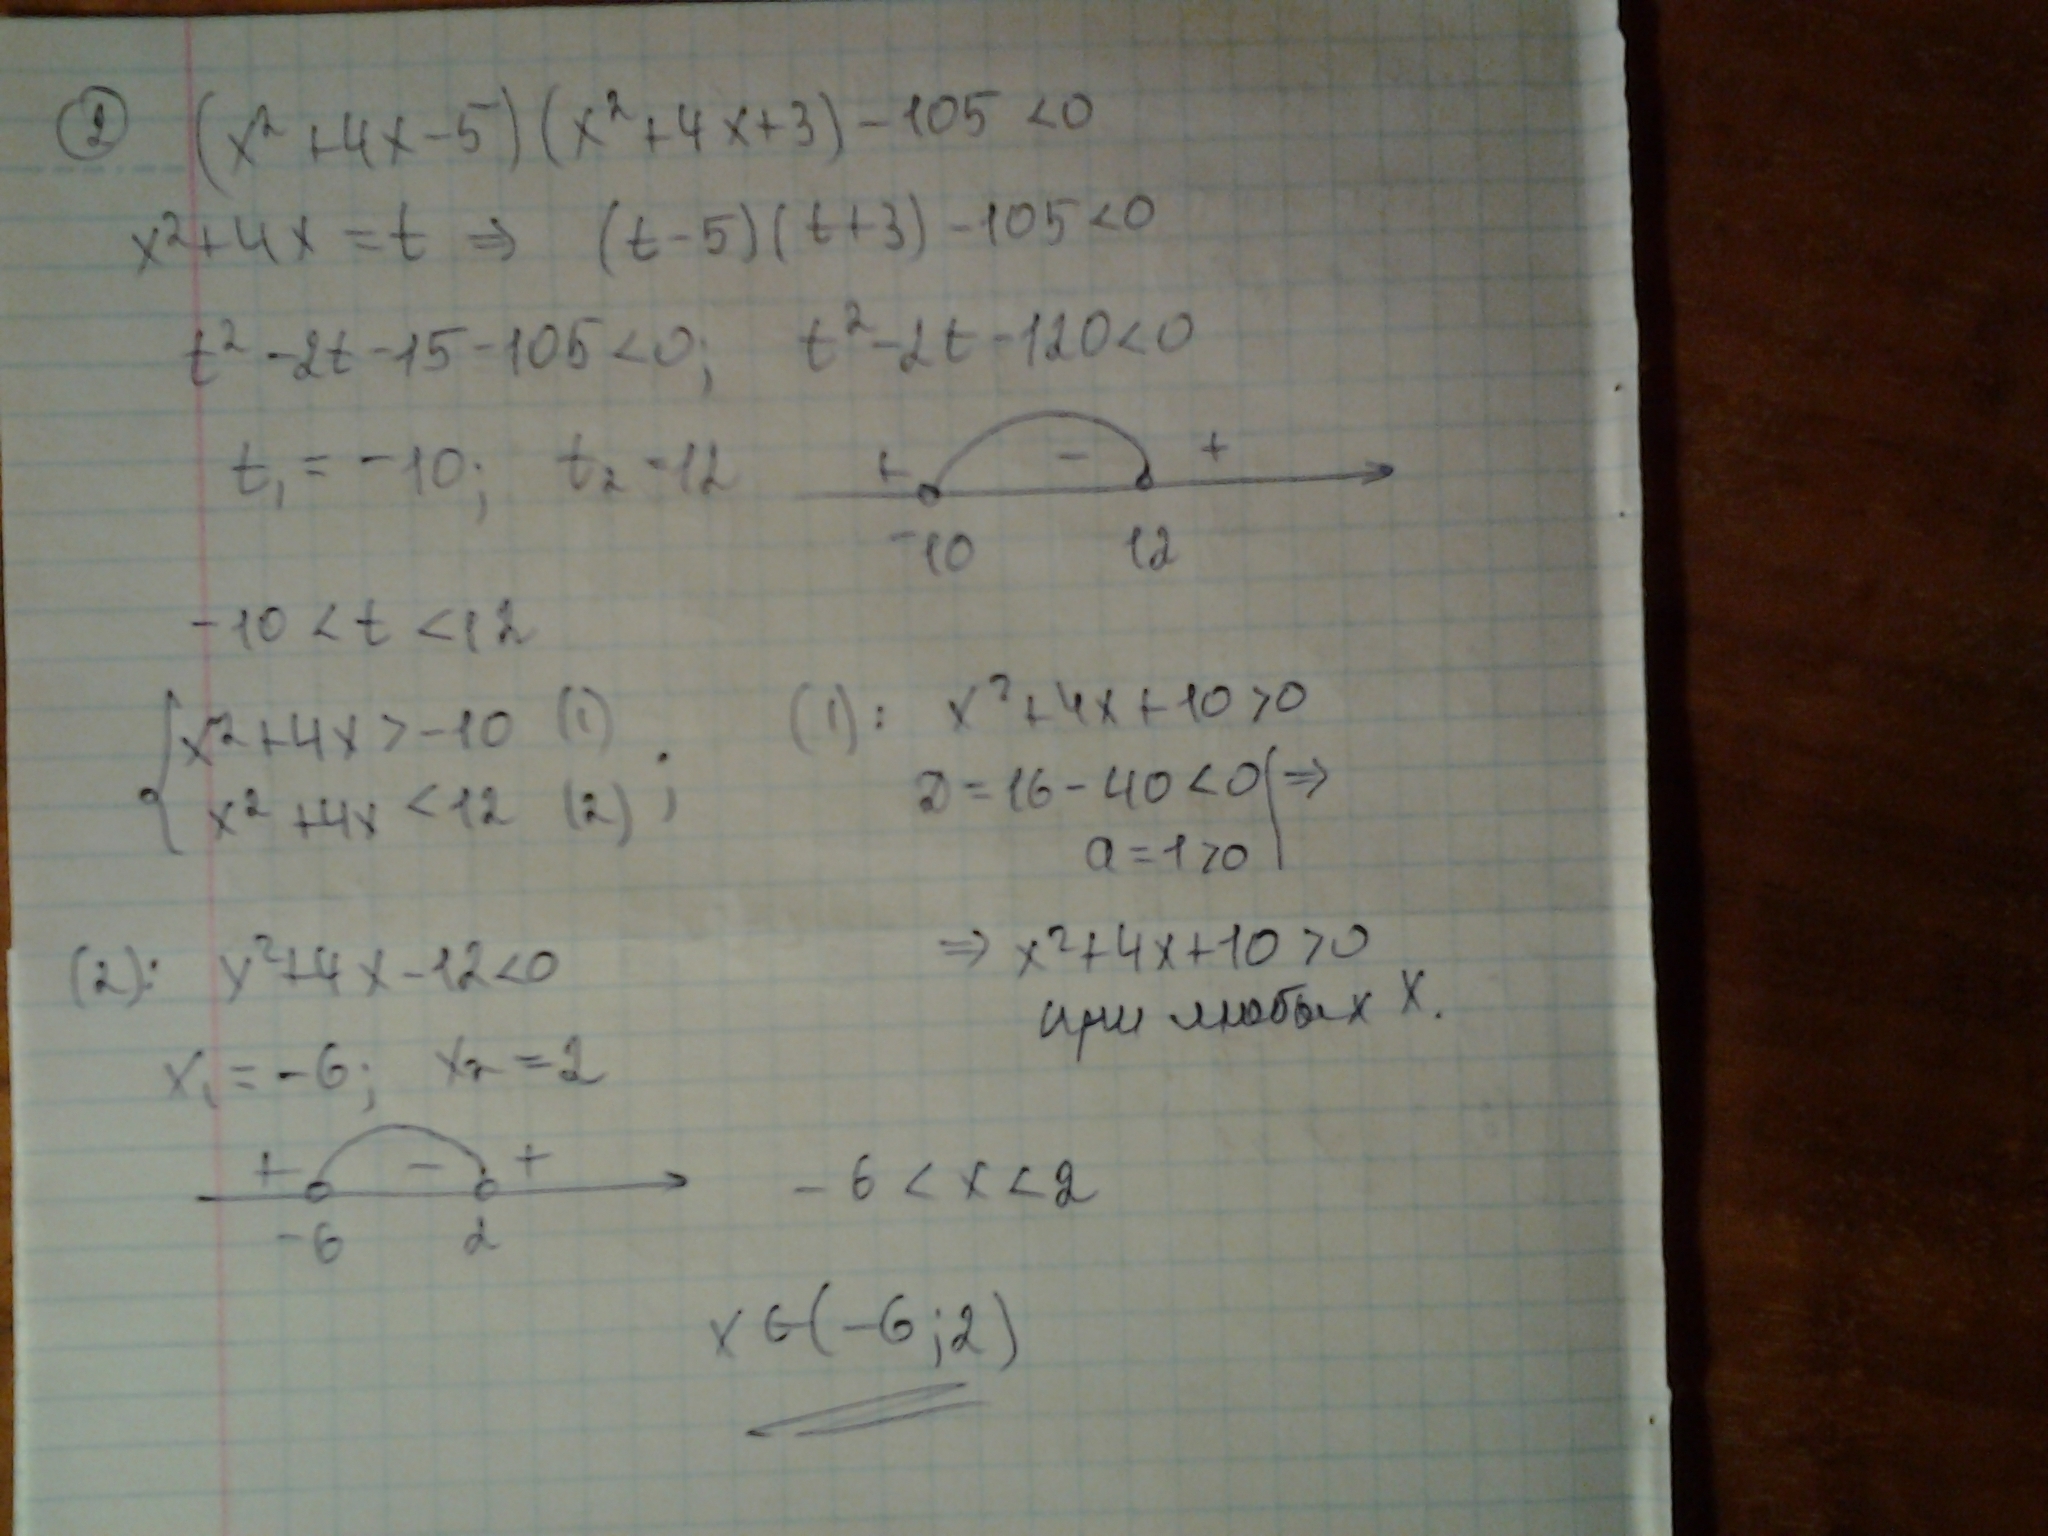 ② (x² + 4x - 5)(x² + 4x + 3) - 105 < 0
x² + 4x = t ⇒ (t - 5)(t + 3) - 105 < 0
t² - 2t - 15 - 105 < 0; t² - 2t - 120 < 0
t₁ = -10; t₂ = 12
+ - +
-10 12
-10 < t < 12
x² + 4x > -10 (1)
x² + 4x < 12 (2) ;
(1): x² + 4x + 10 > 0
D = 16 - 40 < 0 ⇒
a = 1 > 0
⇒ x² + 4x + 10 > 0
при любых x.
(2): x² + 4x - 12 < 0
x₁ = -6; x₂ = 2
+ - +
-6 2
-6 < x < 2
x ∈ (-6; 2)